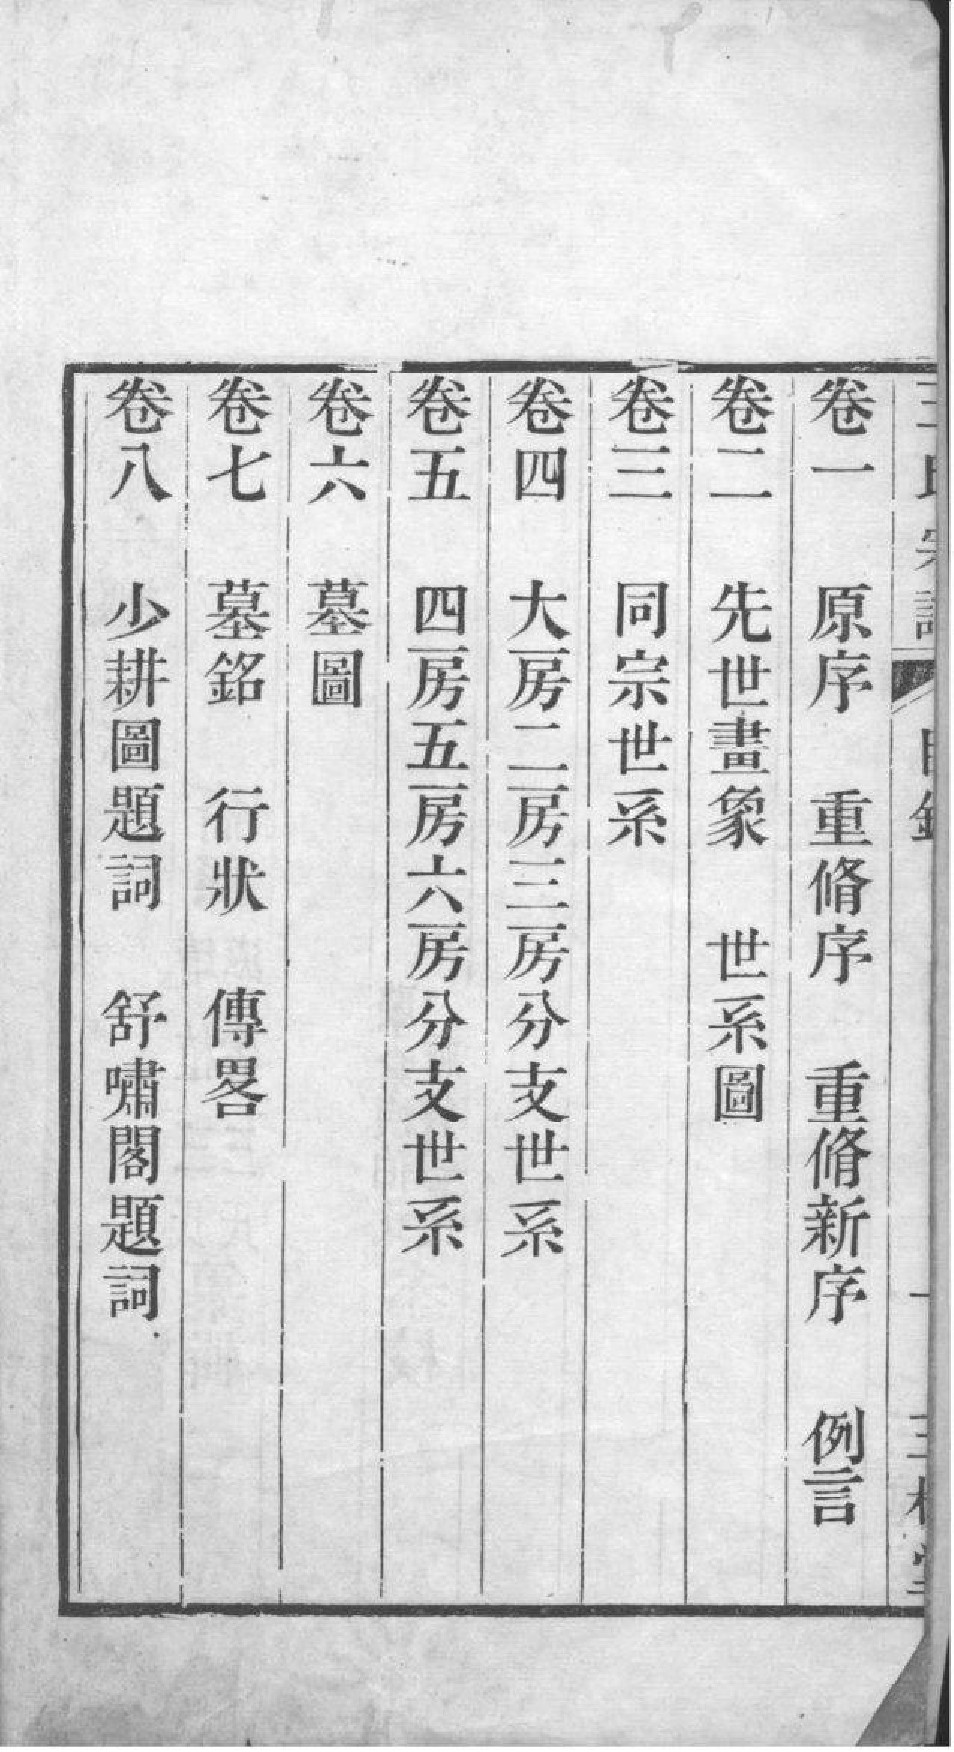 王氏宗譜 目錄 一 三槐堂
卷一 原序 重脩序 重脩新序 例言
卷二 先世畫象 世系圖
卷三 同宗世系
卷四 大房二房三房分支世系
卷五 四房五房六房分支世系
卷六 墓圖
卷七 墓銘 行狀 傳畧
卷八 少耕圖題詞 舒嘯閣題詞